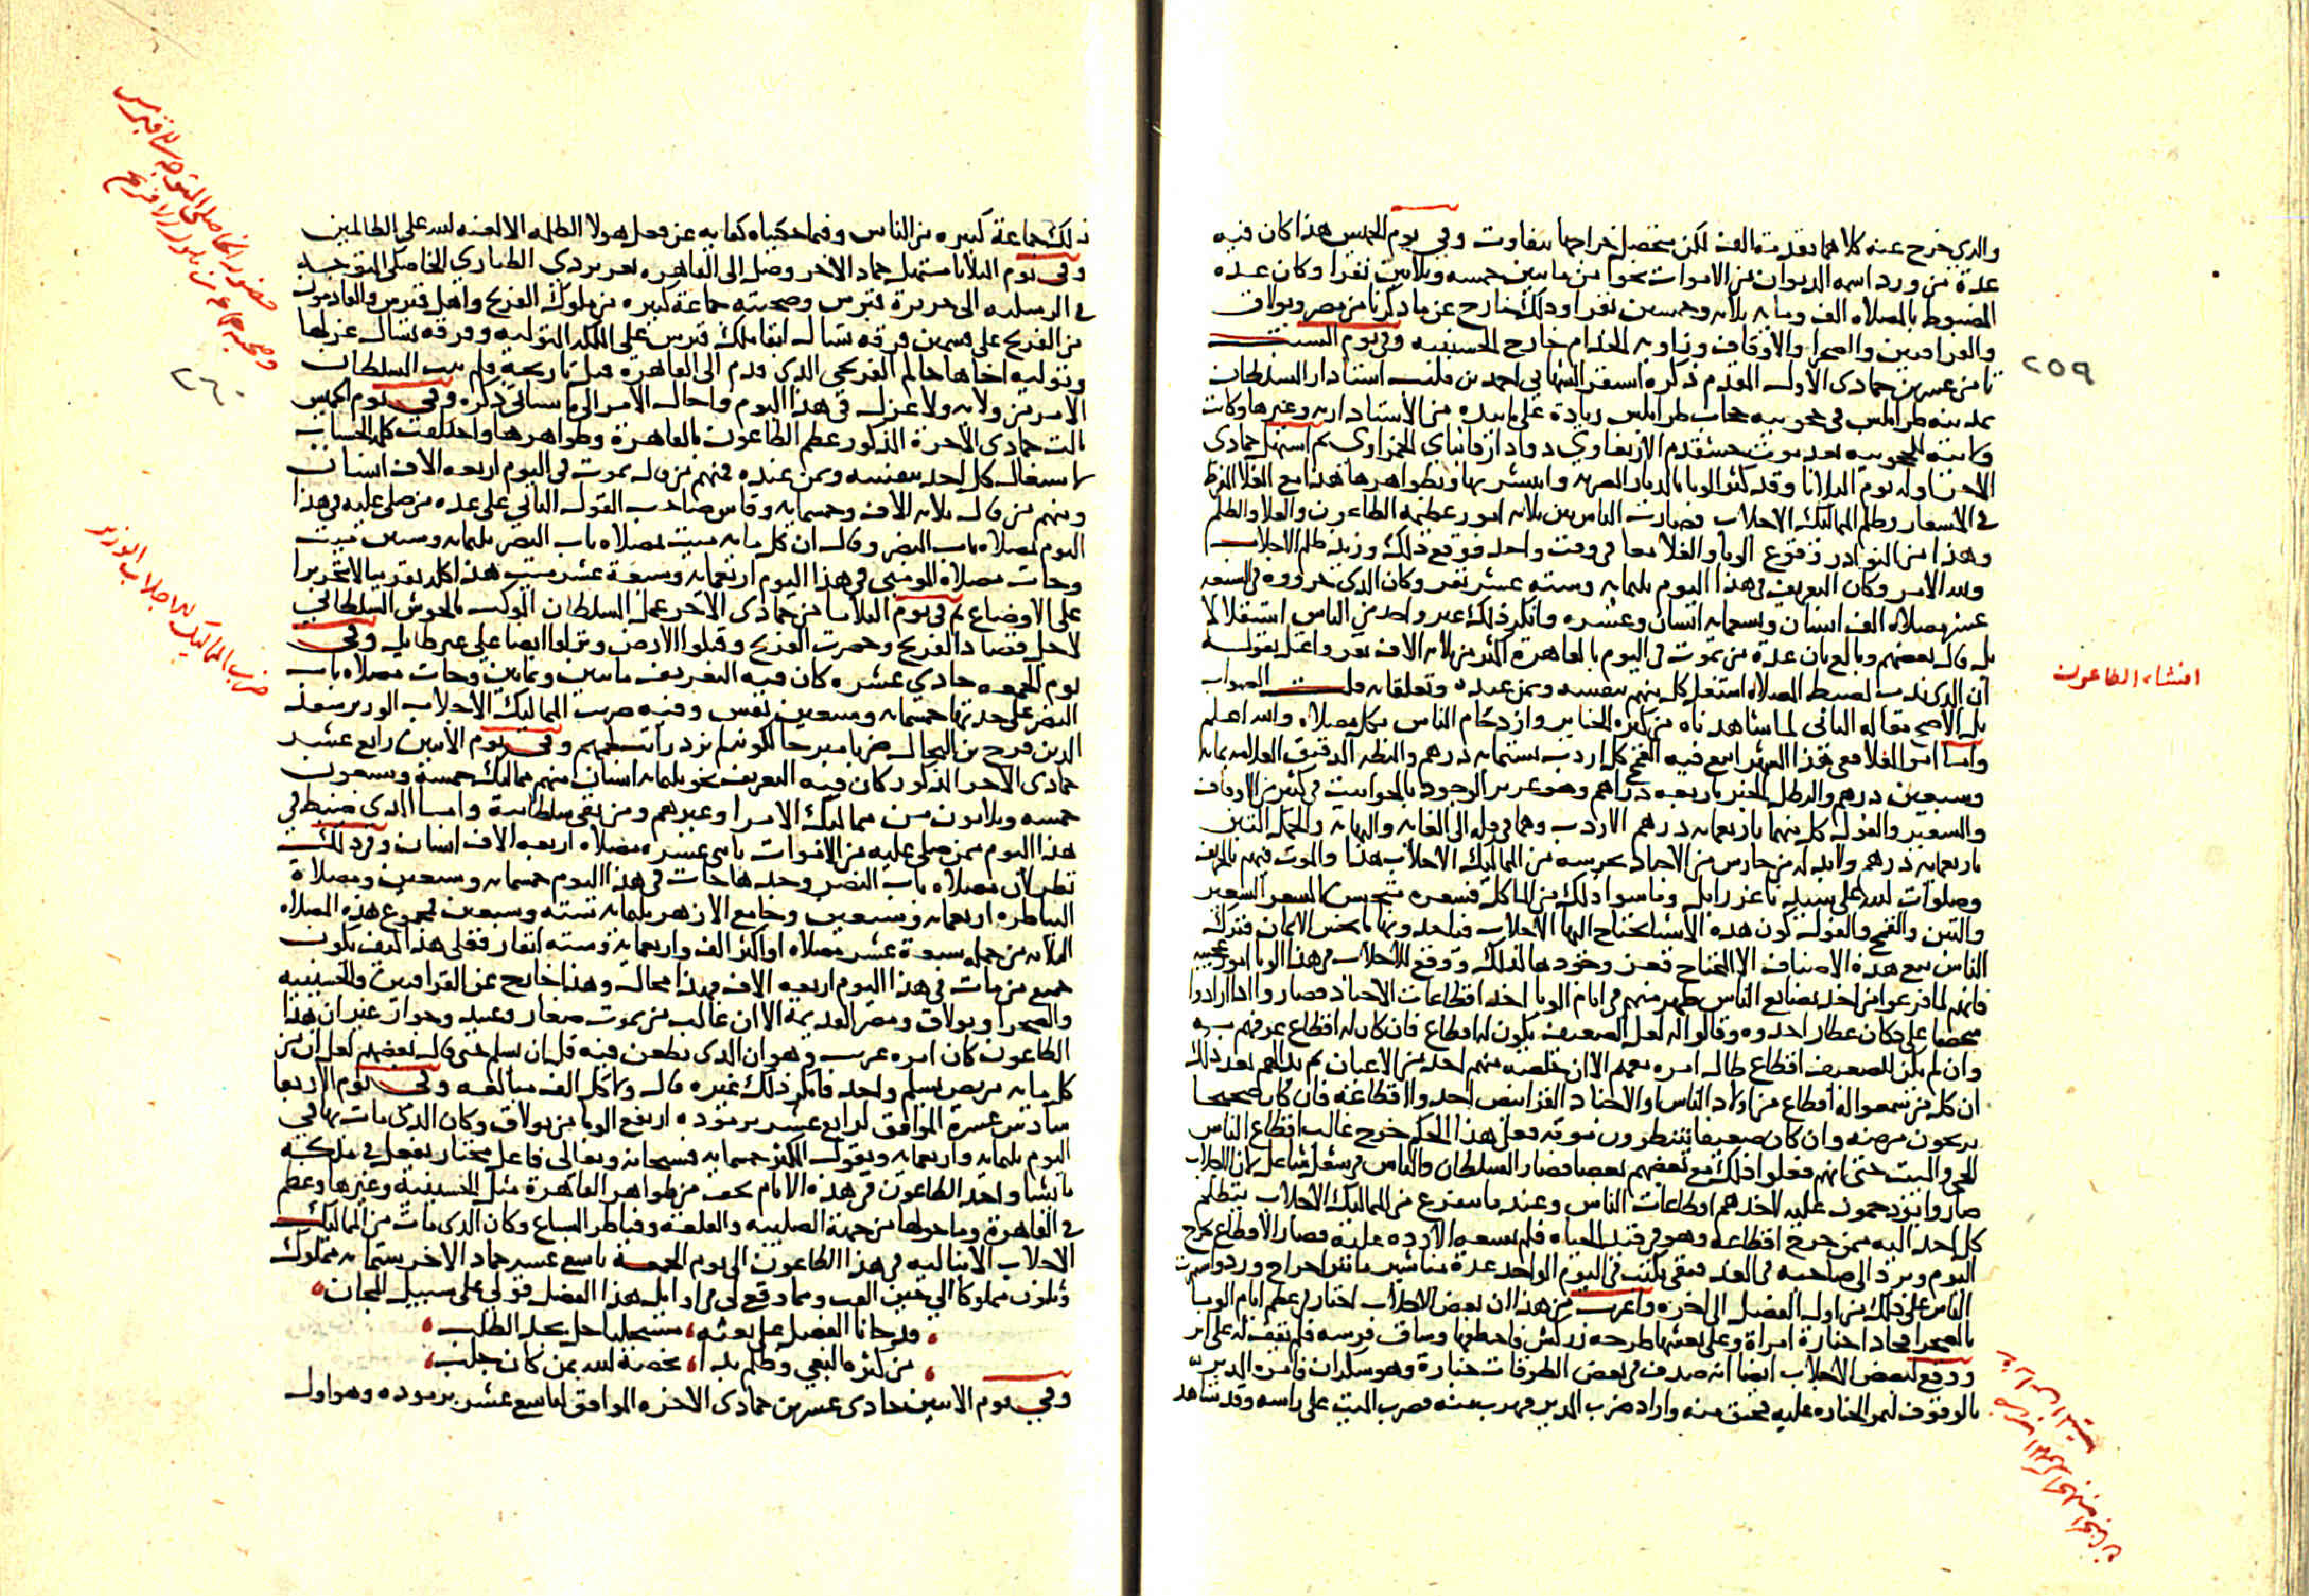 والذي خرج عنه كلاهما تقدمة الف لكن متحصل خراجها بتفاوت وفي يوم الخميس هذا كان فيه
عدة من ورد اسمه الديوان من الاموات نحوا من مايتين خمسه وثلاثين نفرا وكان عده
المضبوط بالمصلاه الف ومايه وثلاثه وخمسين نفرا وذلك خارج عن ما ذكرنا من مصر وبولاق
والقرافتين والصحرا والاوقاف وزاويه الخدام خارج الحسينيه وفي يوم السبت
ثامن عشرين جمادى الاول المقدم ذكره استقر الشهابي احمد بن قليب استادار السلطان
بمدينه طرابلس في حجوبيه حجاب طرابلس زيادة على ما بيده من الاستاداريه وغيرها وكانت
ولايته للحجوبيه بعد موت خشقدم الاربغاوي دوادار قانباي الحمزاوي ثم استهل جمادى
الاخرة اوله يوم الثلاثا وقد كثر الوبا بالديار المصريه وانتشر بها وبظواهرها هذا مع الغلا المفرط
في الاسعار وظلم المماليك الاجلاب فصارت الناس بين ثلاثه امور عظيمه الطاعون والغلا والظلم
وهذا من النوادر وقوع الوبا والغلا معا في وقت واحد فوقع ذلك وزيد ظلم الاجلاب
ولله الامر وكان التعريف في هذا اليوم ثلثمايه وسته عشر نفر وكان الذي حرروه في السبعه
عشر مصلاه الف انسان وتسعمايه انسان وعشره وانكر ذلك غير واحد من الناس استقلالا
بل قال بعضهم وبالغ بان عدة من يموت في اليوم بالقاهرة اكثر من ثلاثه الاف نفر واعتل بقوله
ان الذي ندب لضبط المصلاه اشتغل كل منهم بنفسه وبمن عنده وتعلقاته قلت الصواب
بل الاصح مقاله الثاني لما شاهدناه من كثره الجنايز وازدحام الناس بكل مصلاه والله اعلم
واما امر الغلا ففي هذا الشهر ابيع فيه القمح كل اردب بستمايه درهم والبطه الدقيق العلامه بمايه
وسبعين درهم والرطل الخبز باربعه دراهم وهو عزيز الوجود بالحوانيت في كثير من الاوقات
والشعير والفول كل منهما باربعمايه درهم الاردب وهما في قله الى الغايه والنهايه والحمل التبن
باربعمايه درهم ولابد له من حارس من الاجناد يحرسه من المماليك الاجلاب هذا والموت فيهم بالمرصد
وصلوات الله على سيدنا عزرايل وما سوا ذلك من الماكل فسعره متحسن الا السعر الشعير
والتبن والقمح والفول كون هذه الاشيا يحتاج اليها الاجلاب فياخذونها بابخس الاثمان فترك
الناس بيع هذه الاصناف الا المحتاج فعز وجودها لذلك ووقع للاجلاب في هذا الوبا امور عجيبه
فانهم لما فرغوا من اخذ بضايع الناس ظهر منهم في ايام الوبا اخذ اقطاعات الاجناد فصاروا اذا راوا
شخصا على دكان عطار اخذوه وقالوا له لعل الضعيف يكون له اقطاع فان كان له اقطاع عرفهم به
وان لم يكن للضعيف اقطاع طال امره معهم الا ان خلصه منهم احد من الاعيان ثم بدالهم بعد ذلك
ان كل من سمعوا له اقطاع من اولاد الناس او الاجناد القرانيص اخذوا اقطاعه فان كان صحيحا
يرجون مرضه وان كان ضعيفا ينتظرون موته فعلى هذا الحكم خرج غالب اقطاع الناس
الحي والميت حتى انهم فعلوا ذلك مع بعضهم بعضا فصار السلطان والناس في شغل شاغل لان الاجلاب
صاروا يزدحمون عليه لاخذهم اقطاعات الناس وعند ما يتفرغ من المماليك الاجلاب يتظلم
كل احد اليه ممن خرج اقطاعه وهو في قيد الحياه فلم يسعه الا رده عليه فصار الاقطاع يخرج
اليوم ويرد الى صاحبه في الغد فبقي يكتب في اليوم الواحد عدة مناشير ما بين اخراج ورد واستمرت
الناس على ذلك من اول الفصل الى اخره واغرب من هذا ان بعض الاجلاب اجتاز في عظم ايام الوبا
بالصحرا فحاذا جنازة امراة وعلى نعشها طرحه زركش فاختطفها وساق فرسه فلم يقف له على اثر
ووقع لبعض الاجلاب ايضا انه صدف في بعض الطرقات جنازة وهو سكران فامره المدير
بالوقوف لتمر الجنازه عليه فحنق منه واراد ضرب المدير فهرب منه فضرب الميت على راسه وقد شاهد
٢٥٩
افشاء الطاعون
ذلك جماعة كبيره من الناس وفيما حكيناه كفايه عن فعل هولا الظلمه الا لعنه الله على الظالمين
وفي يوم الثلاثا مستهل جماد الاخر وصل الى القاهره تغري بردي الطياري الخاصكي المتوجه
في الرسليه الى جزيرة قبرس وصحبته جماعة كبيره من ملوك الفرنج واهل قبرس والقادمون
من الفرنج على قسمين فرقه تسال ابقا ملك قبرس على الملكه المتوليه وفرقه تسال عزلها
وتوليه اخاها جاكم الفرنجي الذي قدم الى القاهره قبل تاريخه فلم يبت السلطان
الامر من ولايه ولا عزل في هذا اليوم واحال الامر الى ما سياتي ذكره وفي يوم الخميس
ثالث جمادى الاخرة المذكور عظم الطاعون بالقاهرة وظواهرها واختلفت كلمه الحساب
لاشتغال كل احد بنفسه وبمن عنده فمنهم من قال يموت في اليوم اربعه الاف انسان
ومنهم من قال ثلاثه الاف وخمسمايه وقاس صاحب القول الثاني على عده من صلى عليه في هذا
اليوم بمصلاه باب النصر وقال ان كل مايه ميت بمصلاه باب النصر بثلثمايه وستين ميت
وجات مصلاة المومني في هذا اليوم اربعمايه وسبعة عشر ميت هذا كله تقريبا لا تحريرا
على الاوضاع ثم في يوم الثلاثا من جمادى الاخر عمل السلطان الموكب بالحوش السلطاني
لاجل قصاد الفرنج وحضرت الفرنج وقبلوا الارض ونزلوا ايضا على غير طايل وفي
يوم الجمعه حادي عشره كان فيه التعريف مايتين وثمانين وجات مصلاه باب
النصر على حدتها خمسمايه وسبعين نفس وفيه ضرب المماليك الاجلاب الوزير سعد
الدين فرج بن النحال ضربا مبرحا لكونه لم يزد راتب لحمهم وفي يوم الاثنين رابع عشر
جمادى الاخر المذكور كان فيه التعريف نحو ثلثمايه انسان منهم مماليك خمسة وسبعون
خمسه وثلاثون من مماليك الامرا وغيرهم ومن بقي سلطانية واما الذي ضبط في
هذا اليوم ممن صلى عليه من الاموات باثني عشره مصلاه اربعه الاف انسان وفي ذلك
نظر لان مصلاه باب النصر وحدها جات في هذا اليوم خمسمايه وسبعين ومصلاة
البياطره اربعمايه وسبعين وجامع الازهر ثلثمايه سته وسبعين فمجموع هذه المصلاه
الثلاثه من جمله سبعة عشر مصلاه او اكثر الف واربعمايه وسته انفار فعلى هذا كيف يكون
جميع من مات في هذا اليوم اربعه الاف فهذا محال وهذا خارج عن القرافتين والحسينيه
والصحرا وبولاق ومصر القديمه الا ان غالب من يموت صغار وعبيد وجوار غير ان هذا
الطاعون كان امره غريب وهو ان الذي يطعن فيه قل ان يسلم حتى قال بعضهم لعل ان من
كل مايه مريض يسلم واحد فانكر ذلك غيره قال ولا كل الف مبالغه وفي يوم الاربعا
سادس عشرة الموافق لرابع عشر برموده ارتفع الوبا من بولاق وكان الذي مات بها في
اليوم ثلثمايه واربعمايه ويقول المكثر خمسمايه فسبحانه وتعالى فاعل مختار يفعل في ملكه
ما يشا واخذ الطاعون في هذه الايام يخف من ظواهر القاهرة مثل الحسينية وغيرها وعظم
في القاهرة وما حولها من جهة الصليبه والقلعة وقناطر السباع وكان الذي مات من المماليك
الاجلاب الاينالية في هذا الطاعون الى يوم الجمعة تاسع عشر جماد الاخر ستمايه مملوك
وثلاثون مملوكا الى حين العب ومما وقع لي مرادا بله هذا الفصل قولي على سبيل المجان
قد جانا الفصل على بغته مستجلبا حل بجد الطلب
من كثره البغي وظلم بدا يخصه الله بمن كان جلب
وفي يوم الاثنين حادي عشرين جمادى الاخره الموافق لتاسع عشر برموده وهو اول
٢٦٠
حضور الخاصكي المتوجه الى قبرس
وصحبته جماعة من ملوك الافرنج
ضرب المماليك الاجلاب الوزير